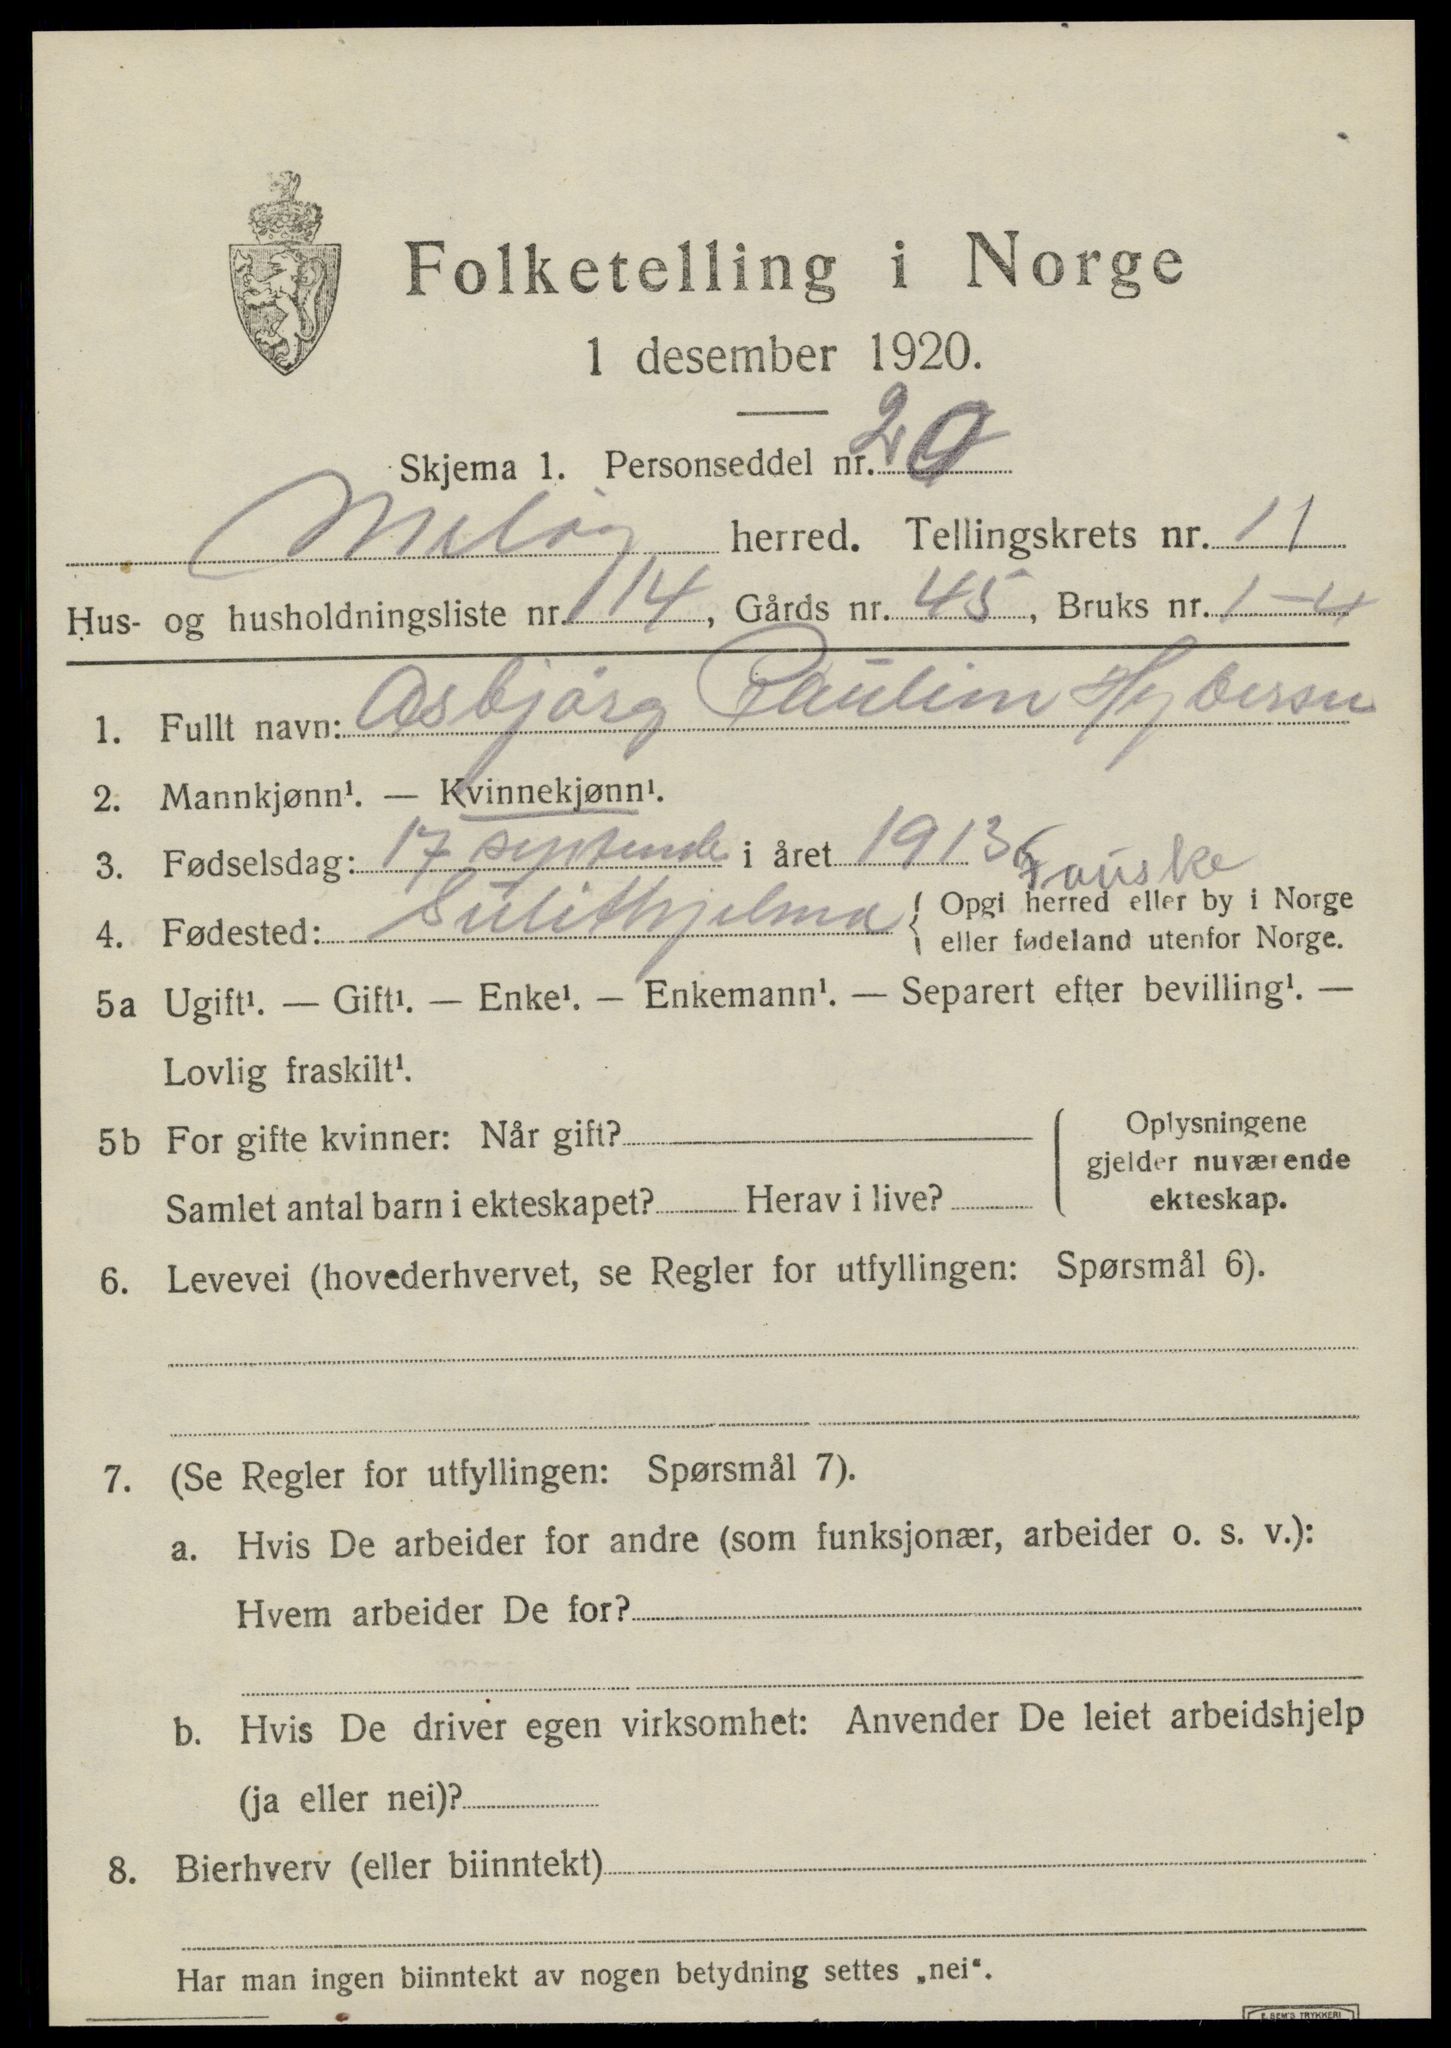 Folketelling i Norge
1 desember 1920.
Skjema 1. Personseddel nr. 20
Meløy herred. Tellingskrets nr. 11
Hus- og husholdningsliste nr. 114, Gårds nr. 45, Bruks nr. 1-4
1. Fullt navn: Asbjörg Paulim
2. Mannkjønn¹. — Kvinnekjønn¹.
3. Fødselsdag: 17 septembr i året 1913
Fauske
4. Fødested: Sulithjelma { Opgi herred eller by i Norge
eller fødeland utenfor Norge.
5a Ugift¹. — Gift¹. — Enke¹. — Enkemann¹. — Separert efter bevilling¹. —
Lovlig fraskilt¹.
5b For gifte kvinner: Når gift?
Samlet antal barn i ekteskapet? Herav i live?
Oplysningene
gjelder nuværende
ekteskap.
6. Levevei (hovederhvervet, se Regler for utfyllingen: Spørsmål 6).
7. (Se Regler for utfyllingen: Spørsmål 7).
a. Hvis De arbeider for andre (som funksjonær, arbeider o. s. v.):
Hvem arbeider De for?
b. Hvis De driver egen virksomhet: Anvender De leiet arbeidshjelp
(ja eller nei)?
8. Bierhverv (eller biinntekt)
Har man ingen biinntekt av nogen betydning settes „nei“.
E. SEM'S TRYKKERI